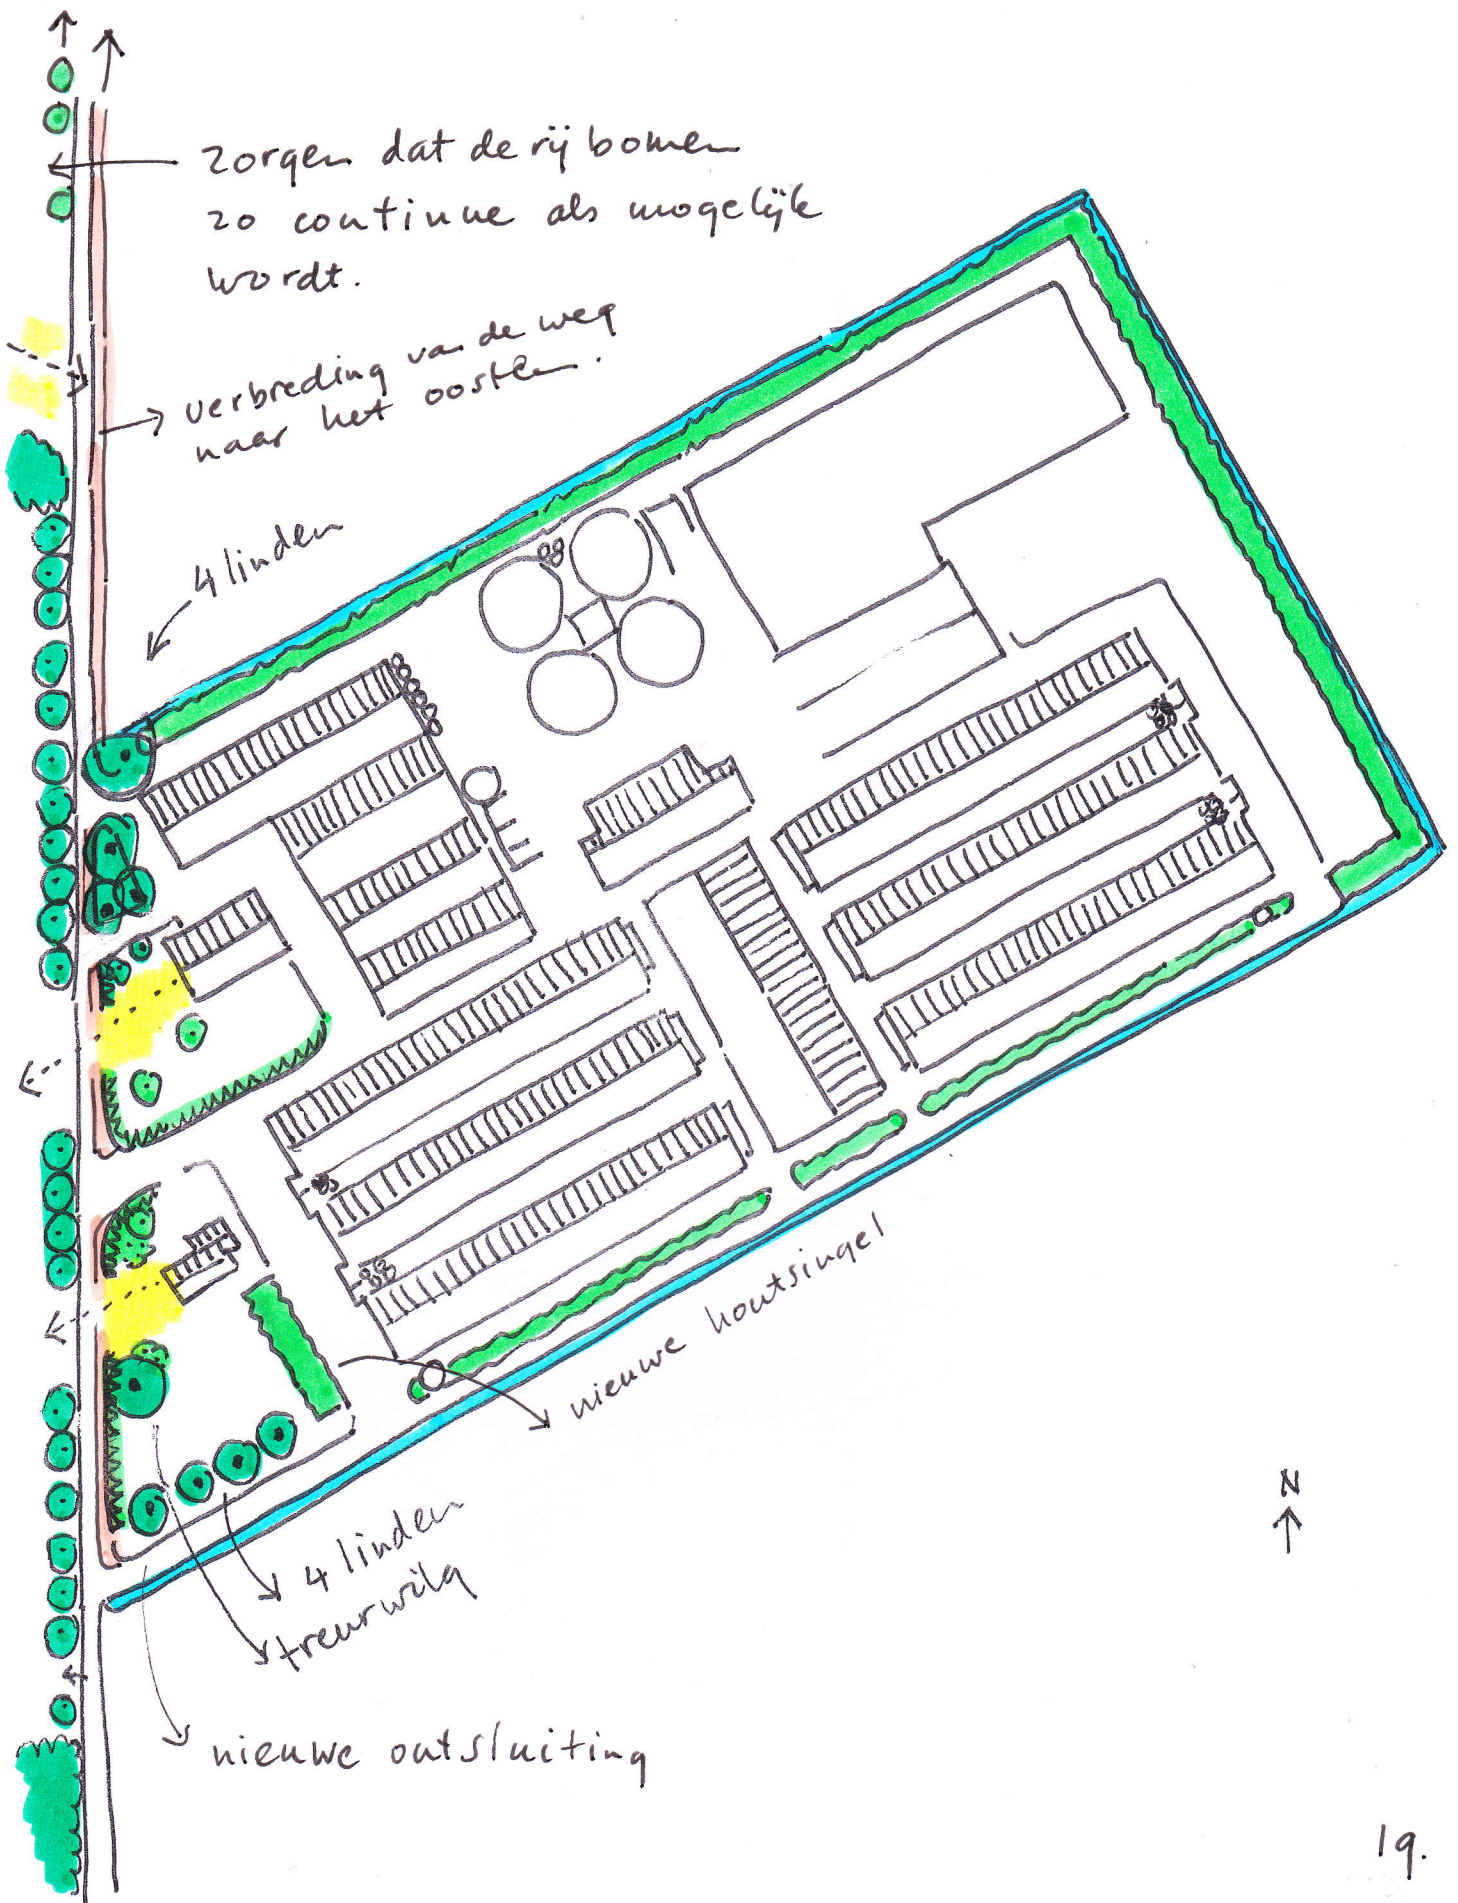 zorgen dat de rij bomen
zo continue als mogelijk
wordt.
verbreding van de weg
naar het oosten.
4 linden
nieuwe houtsingel
N
4 linden
treurwilg
nieuwe ontsluiting
19.